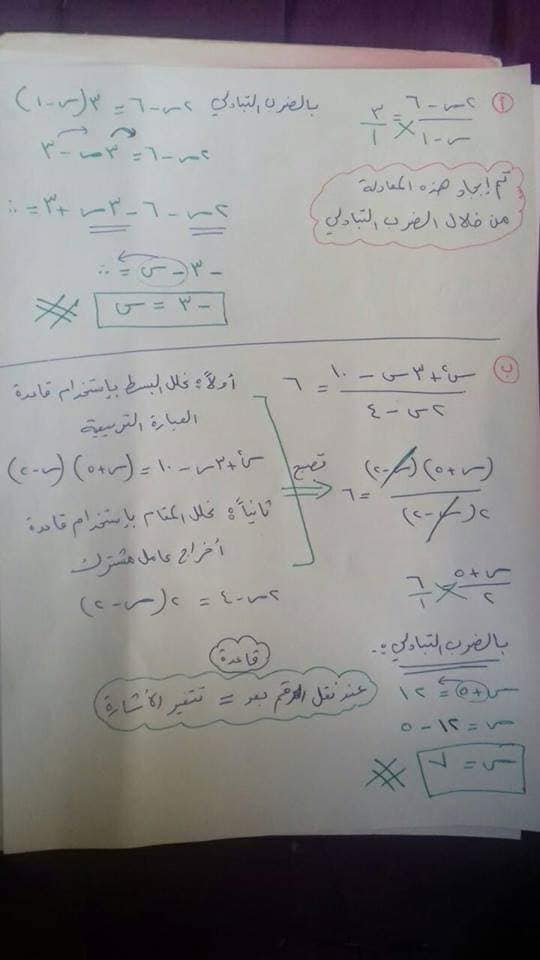 أ) (٢س - ٦)/(س - ١) = ٣/١
بالضرب التبادلي ٢س - ٦ = ٣(س - ١)
٢س - ٦ = ٣س - ٣
تم إيجاد هذه المعادلة
من خلال الضرب التبادلي
٢س - ٦ - ٣س + ٣ = ٠
-٣ - س = ٠
-٣ = س
ب) (س² + ٣س - ١٠)/(٢س - ٤) = ٦
أولاً: نحلل البسط بإستخدام قاعدة
العبارة التربيعية
س² + ٣س - ١٠ = (س + ٥)(س - ٢)
ثانياً: نحلل المقام باستخدام قاعدة
أخراج عامل مشترك
٢س - ٤ = ٢(س - ٢)
تصبح
(س + ٥)(س - ٢)/٢(س - ٢) = ٦
(س + ٥)/٢ = ٦/١
بالضرب التبادلي:
س + ٥ = ١٢
س = ١٢ - ٥
س = ٧
قاعدة
عند نقل الرقم بعد = تتغير الأشارة